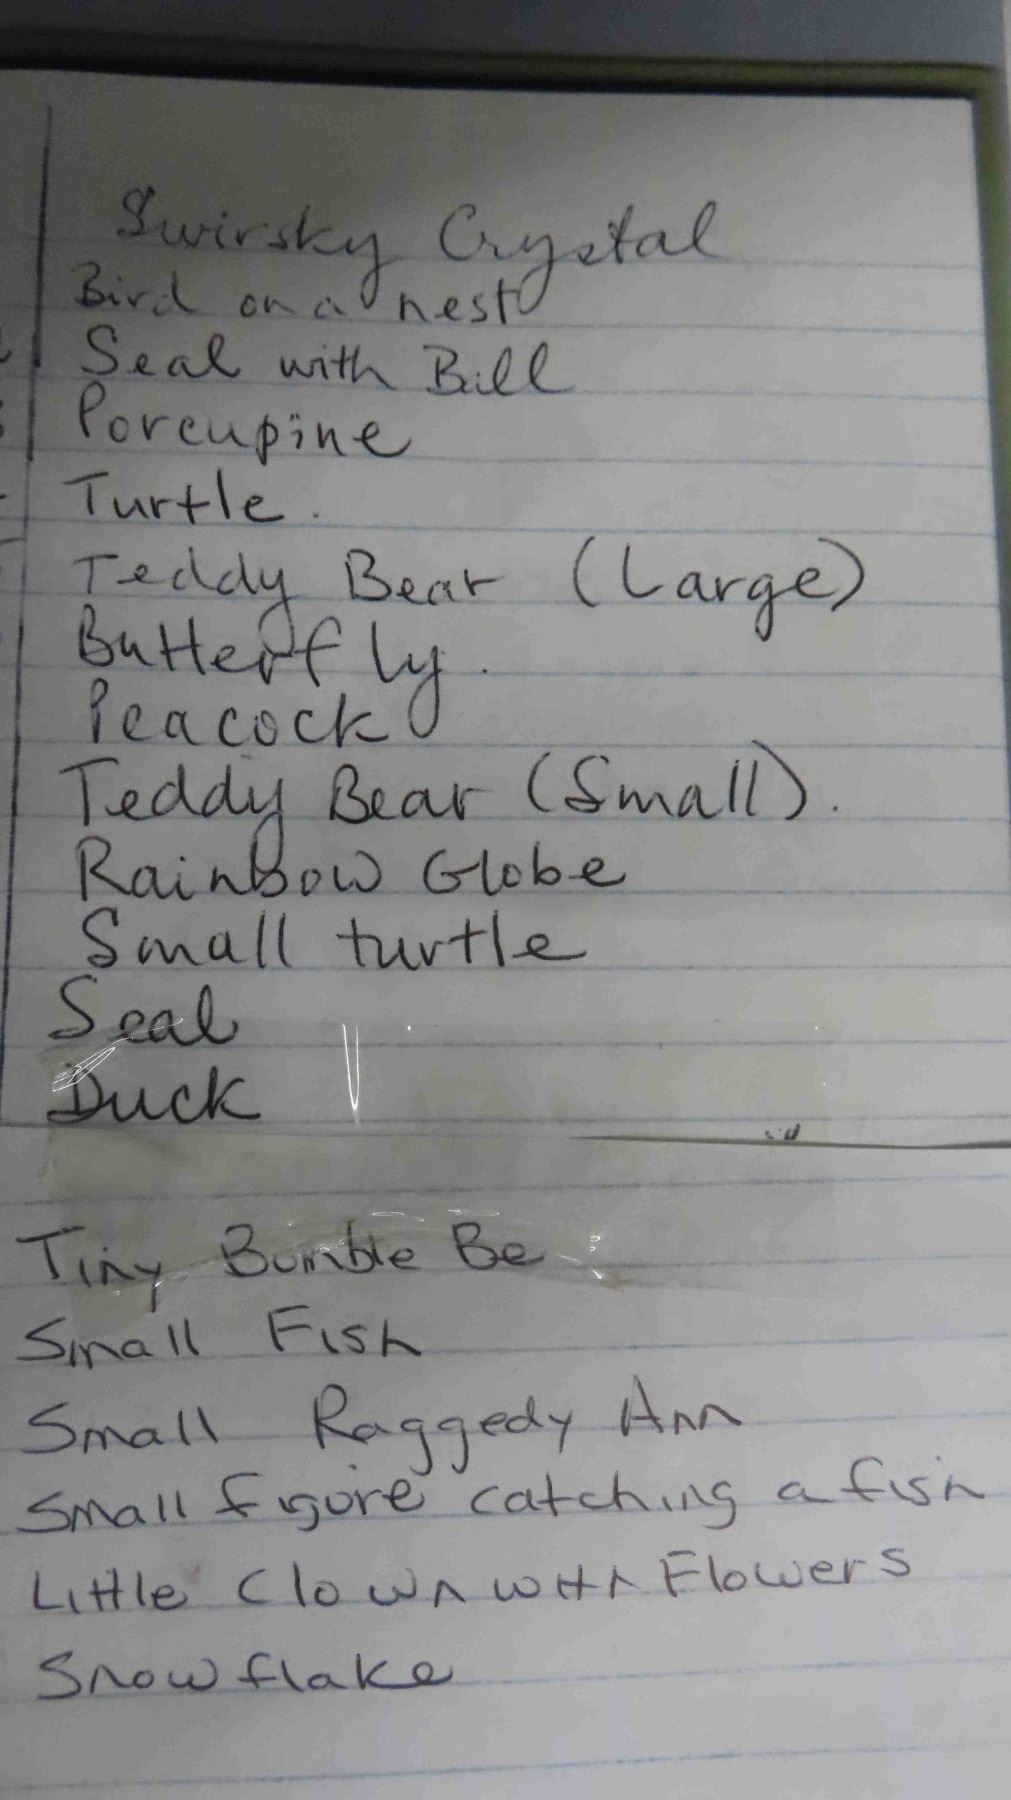 Swirsky Crystal
Bird on a nest
Seal with Ball
Porcupine
Turtle.
Teddy Bear (Large)
Butterfly.
Peacock
Teddy Bear (Small).
RainBow Globe
Small turtle
Seal
Duck
Tiny Bumble Be
Small Fish
Small Raggedy Ann
Small figure catching a fish
Little Clown with Flowers
Snowflake